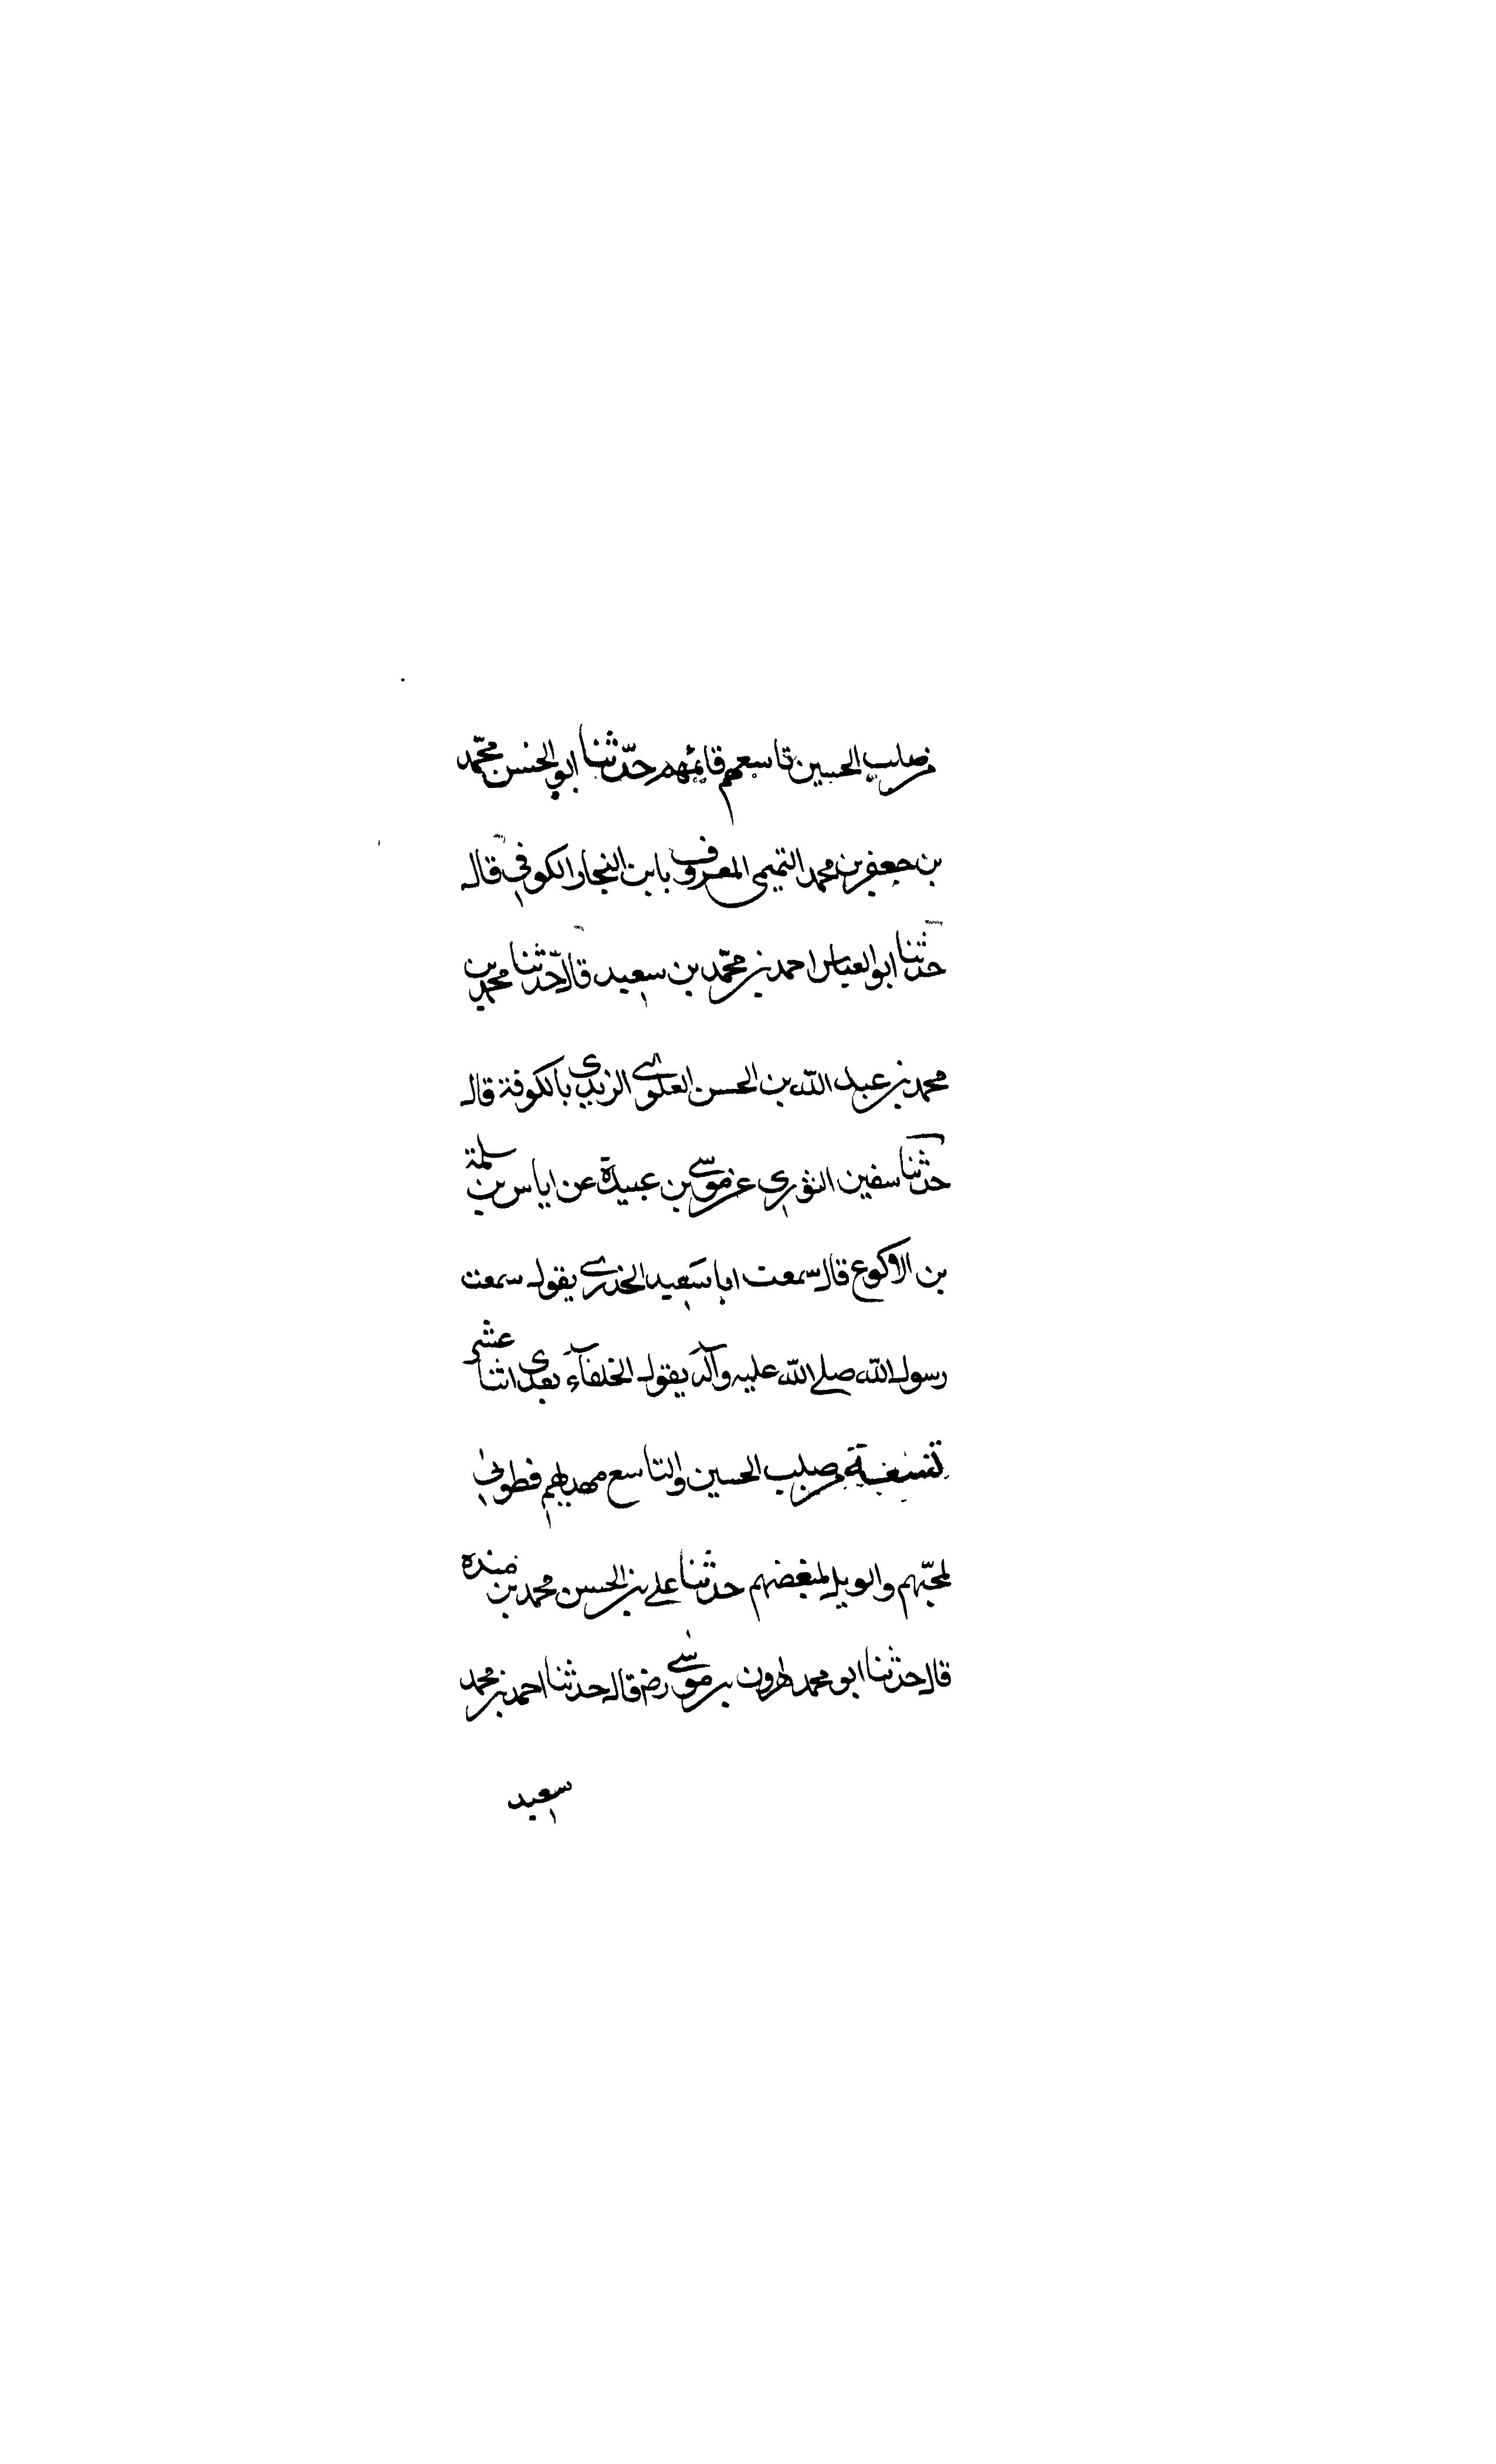 من صلب الحسين تاسعهم قائمهم حدّثنا ابو الحسن محمّد
بن جعفر بن محمد التميمى المعروف بابن النجار الكوفي قال
حدثنا ابو العباس احمد بن محمّد بن سعيد قال حدّثنا محمد بن
محمد بن عبد الله بن الحسن العلوى الزيدى بالكوفة قال
حدثنا سفين الثوري عن موسى بن عبيدة عن اياس بن سلمة
بن الاكوع قال سمعت ابا سعيد الخدرى يقول سمعت
رسول الله صلى الله عليه وآله يقول الخلفآء بعدى اثنا عشر
تسعة من صلب الحسين والتاسع مهديهم فطوبى
لمحبّهم والويل لمبغضهم حدثنا على بن الحسن محمد بن منده
قال حدثنا ابو محمد هرون بن موسى رض قال حدثنا احمد بن محمد
سعيد